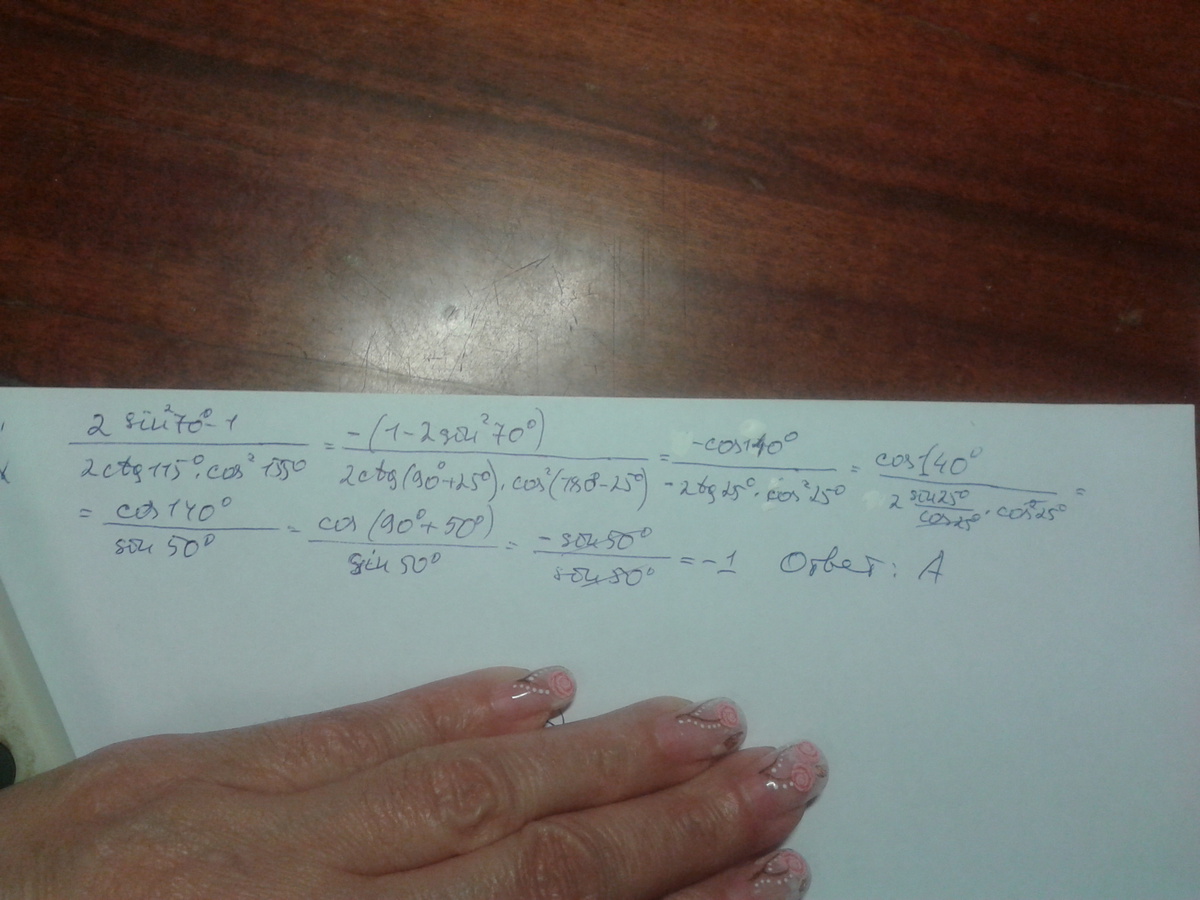 (2 sin²70° - 1)/(2ctg115°·cos²155°) = (-(1-2sin²70°))/(2ctg(90°+25°)·cos²(180°-25°)) = (-cos140°)/(-2tg25°·cos²25°) = (cos140°)/(2 (sin25°/cos25°)·cos²25°) =
= (cos140°)/(sin 50°) = (cos(90°+50°))/(sin 50°) = (-sin50°)/(sin50°) = -1 Ответ: А